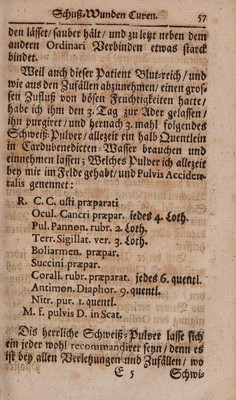 Schuß-Wunden Curen. 57
den lässet/ sauber hält/ und zu letzt neben dem
andern Ordinari Verbinden etwas starck
bindet.
Weil auch dieser Patient Blut-reich/ und
wie aus den Zufällen abzunehmen/ einen gros-
sen Zufluß von bösen Feuchtigkeiten hatte/
habe ich ihm den 3. Tag zur Ader gelassen/
ihn purgiret/ und hernach 3. mahl folgendes
Schweiß-Pulver/ allezeit ein halb Quentlein
in Cardubenedicten-Wasser brauchen und
einnehmen lassen; Welches Pulver ich allezeit
bey mir im Felde gehabt/ und Pulvis Acciden-
talis genennet:
R. C. C. usti præparati.
Ocul. Cancri præpar. jedes 4. Loth.
Pul. Pannon. rubr. 2. Loth.
Terr. Sigillat. ver. 3. Loth.
Boliarmen. præpar.
Succini præpar.
Corall. rubr. præparat. jedes 6. quentl.
Antimon. Diaphor. 9. quentl.
Nitr. pur. 1. quentl.
M. f. pulvis D. in Scat.
Dis herrliche Schweiß-Pulver lasse sich
ein jeder wohl recommandiret seyn/ denn es
ist bey allen Verletzungen und Zufällen/ wo
E 5 Schwi-